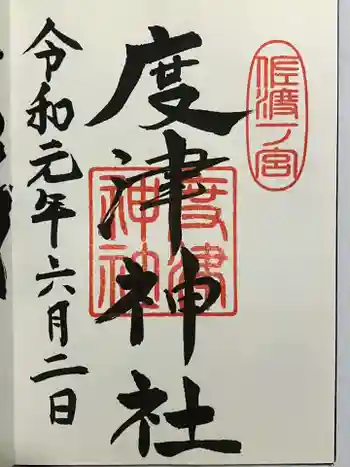 佐渡一ノ宮
度津神社
度津
神社
令和元年六月二日